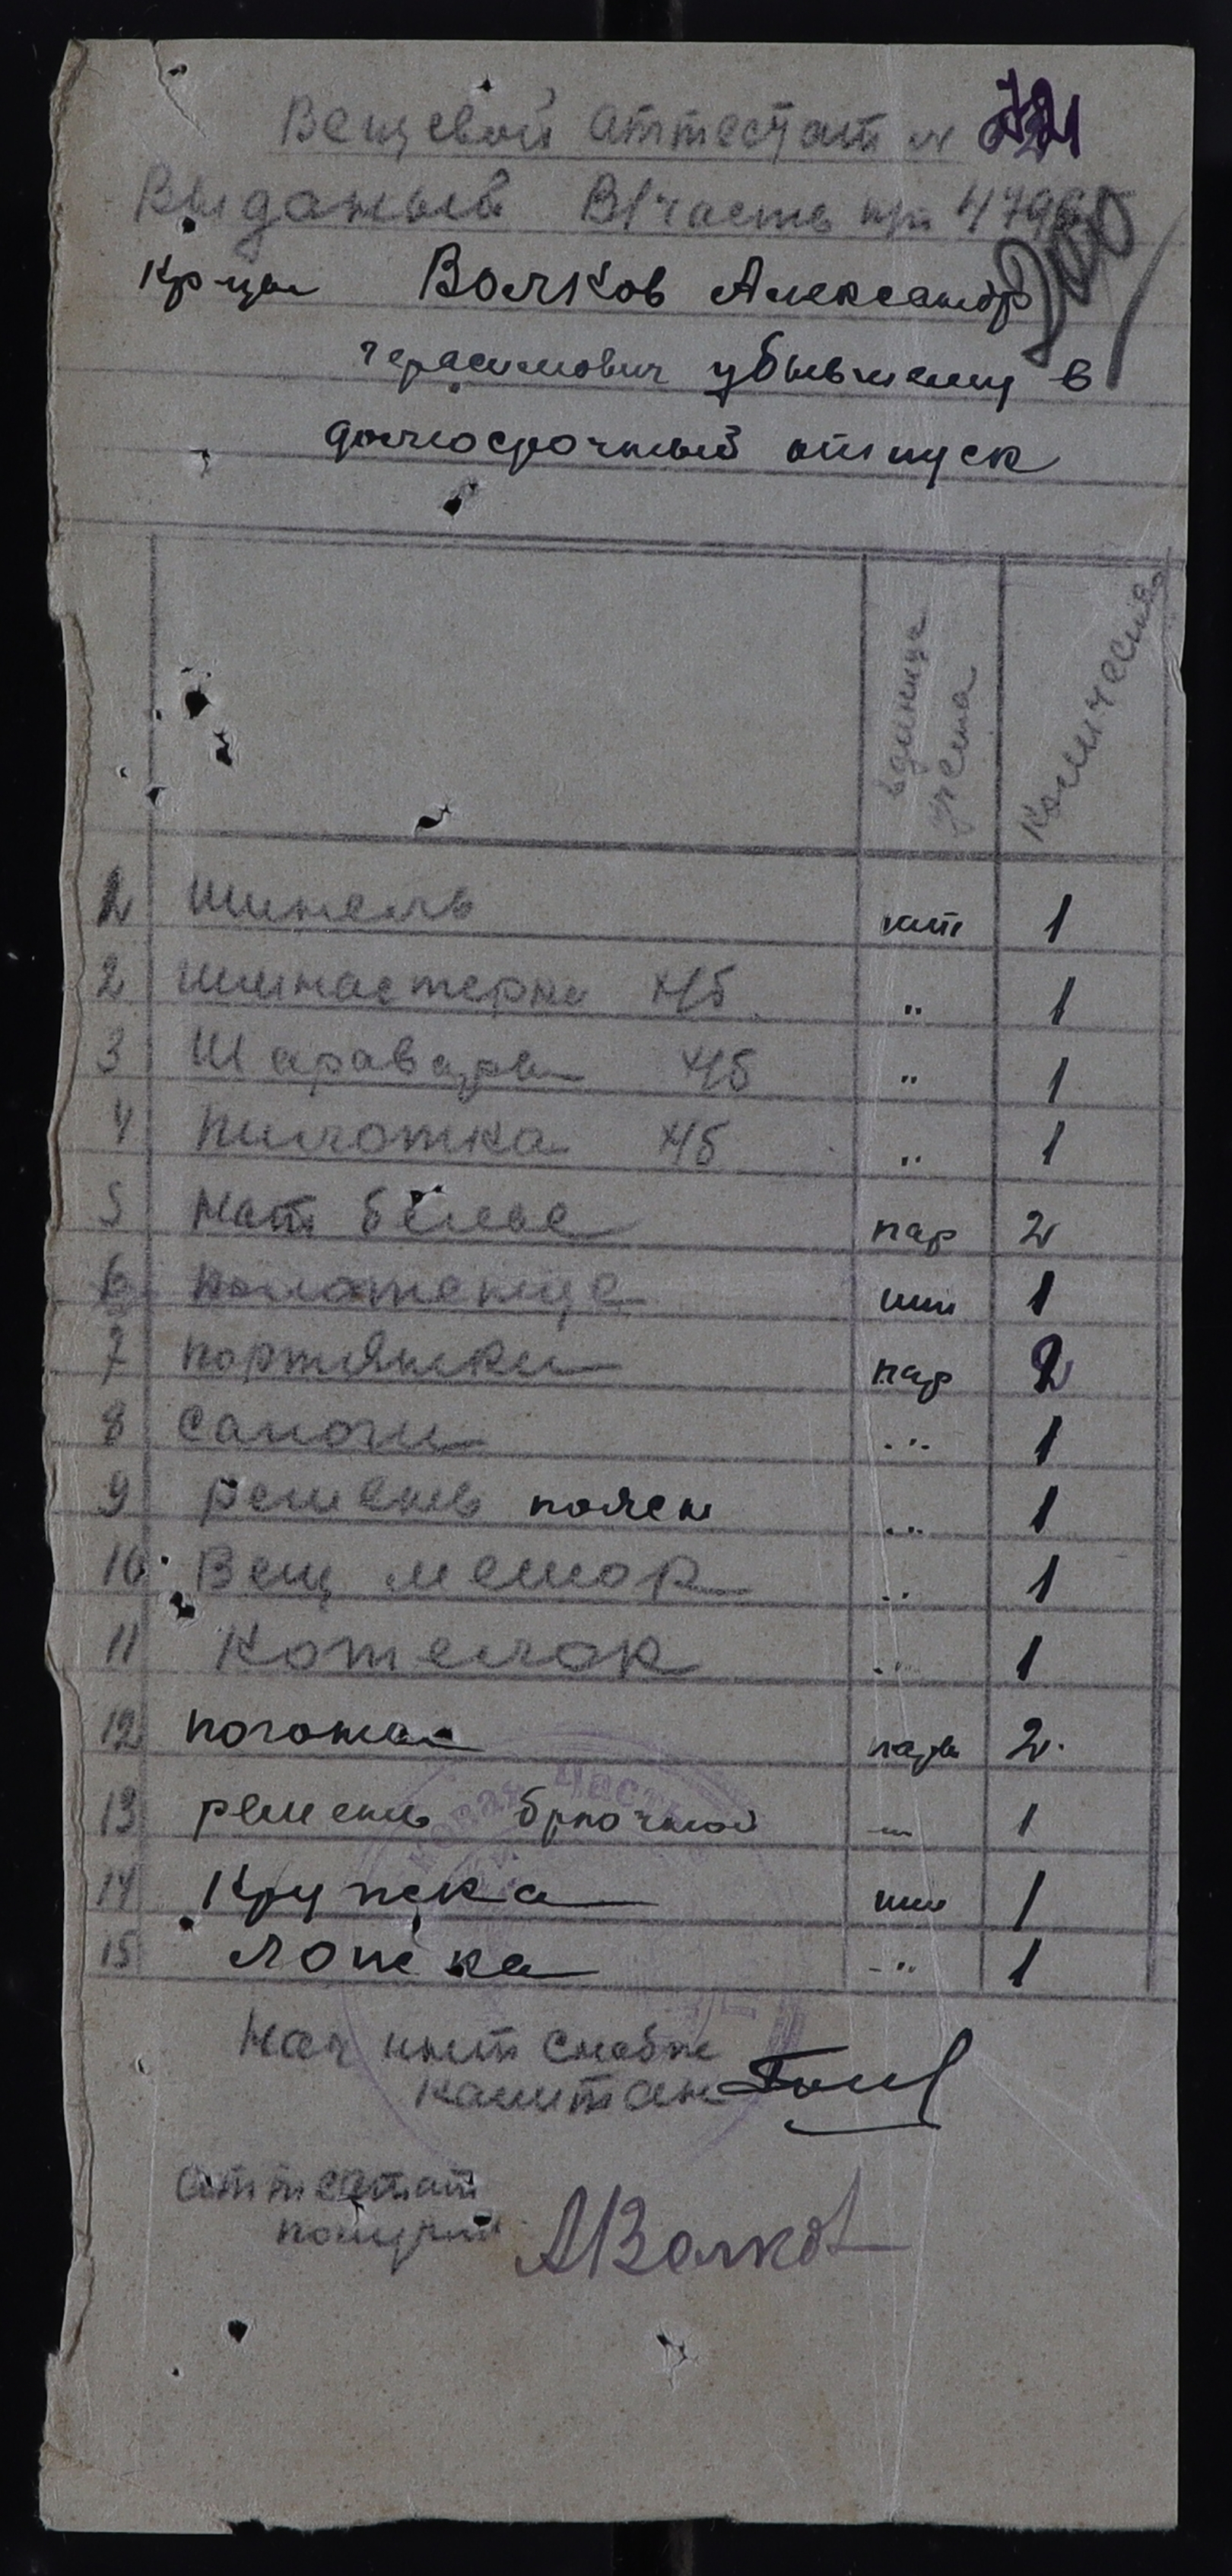 Вещевой аттестат №
Выданый В/часть п/п
Кр-цы Волков Александр
герасимович убывшему в
долгосрочный отпуск
единица учета
Количество
1 шинель шт 1
2 гимнастерка х/б " 1
3 Шаравары х/б " 1
4 Пилотка х/б " 1
5 Нат белье пар 2
6 полотенце шт 1
7 портянки пар 2
8 сапоги -"- 1
9 ремень поясн -"- 1
10 Вещ мешок " 1
11 Котелок -" 1
12 погоны пара 2
13 ремень брючной -"- 1
14 Кружка шт 1
15 ложка -"- 1
Нач инт снабже
капитан
аттестат
получил АВолков